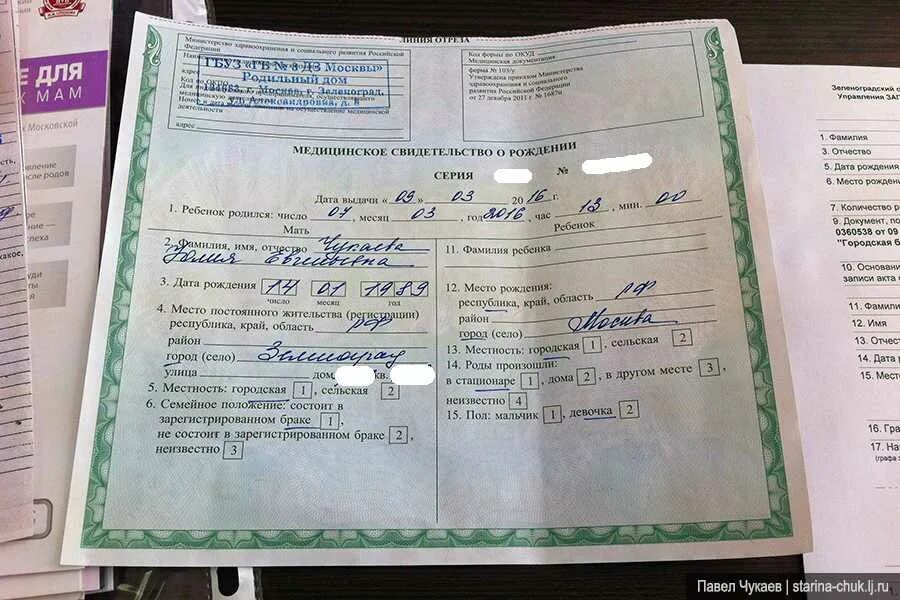 ЛИНИЯ ОТРЕЗА
Министерство здравоохранения и социального развития Российской
Федерации
ГБУЗ «ГБ № 3 ДЗ Москвы»
Родильный дом
г. Москва, г. Зеленоград,
ул. Александровка, д. 8
деятельности
адрес
Код формы по ОКУД
Медицинская документация
форма № 103/у
Утверждена приказом Министерства
здравоохранения и социального
развития Российской Федерации
от 27 декабря 2011 г. № 1687н
МЕДИЦИНСКОЕ СВИДЕТЕЛЬСТВО О РОЖДЕНИИ
СЕРИЯ №
Дата выдачи «09» 03 2016 г.
1. Ребенок родился: число 07, месяц 03, год 2016, час 13, мин. 00
Мать
2. Фамилия, имя, отчество Чукаева
Юлия Евгеньевна
3. Дата рождения 14 01 1989
число месяц год
4. Место постоянного жительства (регистрации)
республика, край, область РФ
район
город (село) Зеленоград
улица дом кв.
5. Местность: городская 1, сельская 2
6. Семейное положение: состоит в
зарегистрированном браке 1,
не состоит в зарегистрированном браке 2,
неизвестно 3
Ребенок
11. Фамилия ребенка
12. Место рождения:
республика, край, область РФ
район
город (село) Москва
13. Местность: городская 1, сельская 2
14. Роды произошли:
в стационаре 1, дома 2, в другом месте 3,
неизвестно 4
15. Пол: мальчик 1, девочка 2
Е ДЛЯ
МАМ
Московской
после родов
Зеленоградский
Управления ЗАГ
1. Фамилия
3. Отчество
5. Дата рождения
6. Место рождения
7. Количество
9. Документ,
0360538 от 09
"Городская б
10. Основани
записи акта
11. Фамили
12. Имя
13. Отчест
14. Дата
15. Мест
16. Гра
17. На
(графа
Павел Чукаев | starina-chuk.lj.ru